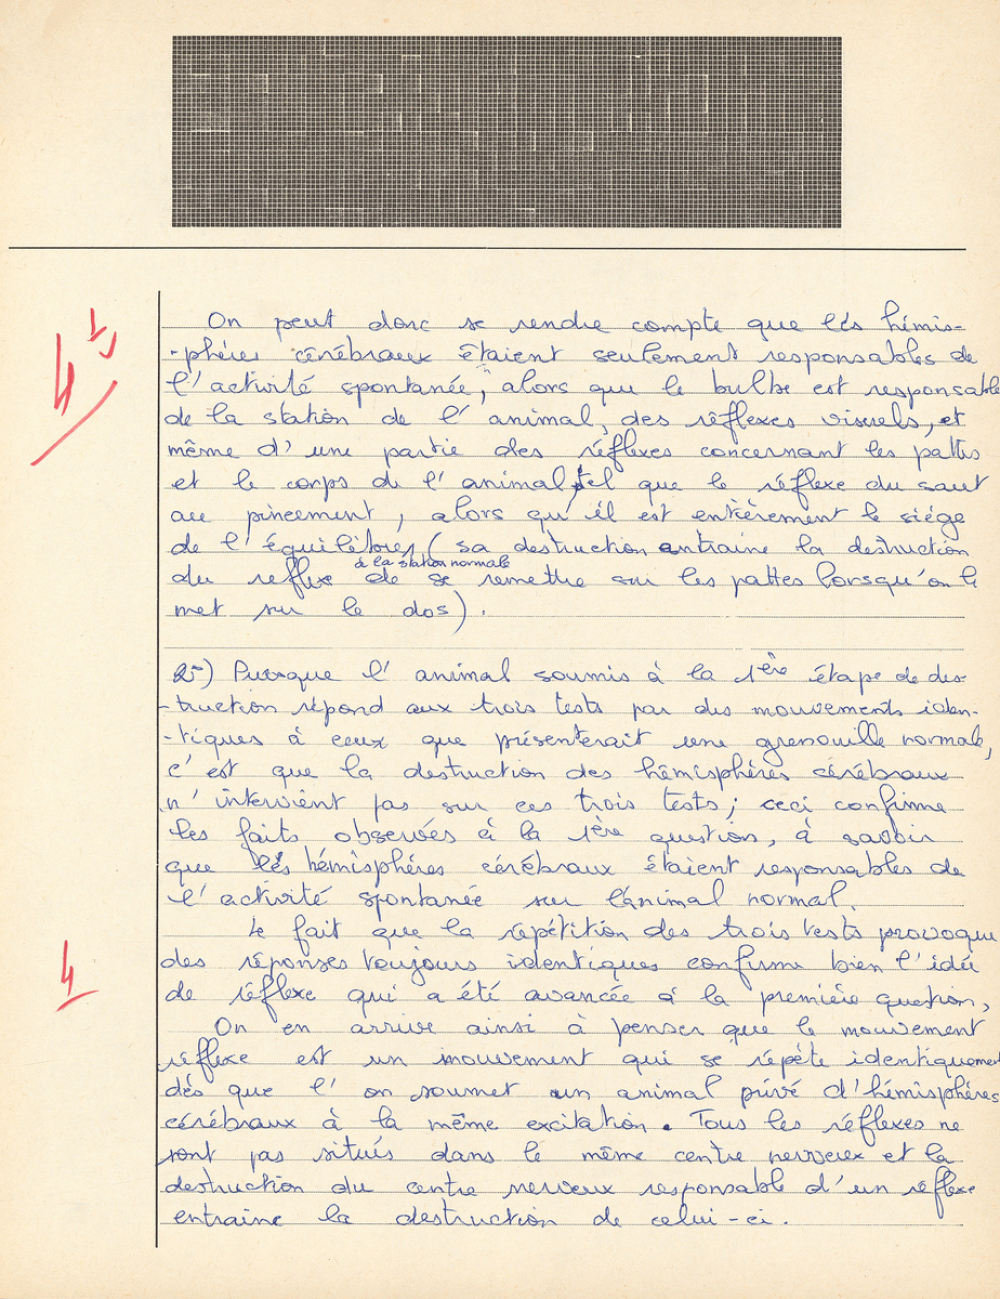 On peut donc se rendre compte que les hémis-
-phères cérébraux étaient seulement responsables de
l'activité spontanée, alors que le bulbe est responsable
de la station de l'animal, des réflexes visuels, et
même d'une partie des réflexes concernant les pattes
et le corps de l'animal, tel que le réflexe du saut
au pincement, alors qu'il est entièrement le siége
de l'équilibres (sa destruction entraine la destruction
à la station normale
du reflexe de se remettre sur les pattes lorsqu'on le
met sur le dos).
2°) Puisque l'animal soumis à la 1ère étape de des-
-truction répond aux trois tests par des mouvements iden-
-tiques à ceux que présenterait une grenouille normale,
c'est que la destruction des hémisphères cérébraux
n'intervient pas sur ces trois tests; ceci confirme
les faits observés à la 1ère question, à savoir
que les hémisphéres cérébraux étaient responsables de
l'activité spontanée sur l'animal normal.
Le fait que la répétition des trois tests provoque
des réponses toujours identiques confirme bien l'idée
de réflexe qui a été avancée à la première question,
On en arrive ainsi à penser que le mouvement
réflexe est un mouvement qui se répète identiquement
dès que l'on soumet un animal privé d'hémisphères
cérébraux à la même excitation. Tous les réflexes ne
sont pas situés dans le même centre nerveux et la
destruction du centre nerveux responsable d'un réflexe
entraine la destruction de celui-ci.
4